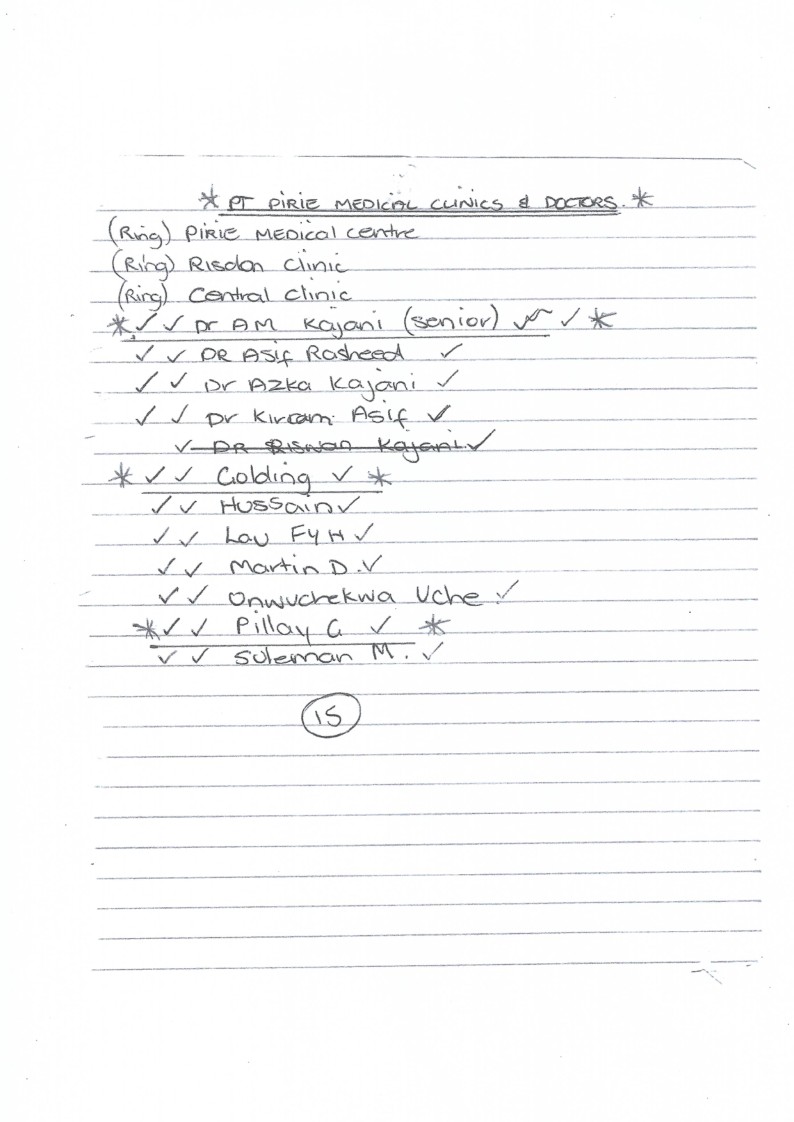 * PT PIRIE MEDICAL CLINICS & DOCTORS. *
(Ring) PIRIE MEDical centre
(Ring) Risdon Clinic
(Ring) Central Clinic
* ✓ ✓ Dr AM Kajani (senior) ✓ ✓ *
✓ ✓ DR Asif Rasheed ✓
✓ ✓ Dr AZKA Kajani ✓
✓ ✓ Dr Kirram Asif ✓
✓ DR RISWAN Kajani ✓
* ✓ ✓ Golding ✓ *
✓ ✓ Hussain ✓
✓ ✓ Lau FYH ✓
✓ ✓ Martin D. ✓
✓ ✓ Onwuchekwa Uche ✓
* ✓ ✓ Pillay G ✓ *
✓ ✓ Suleman M. ✓
15